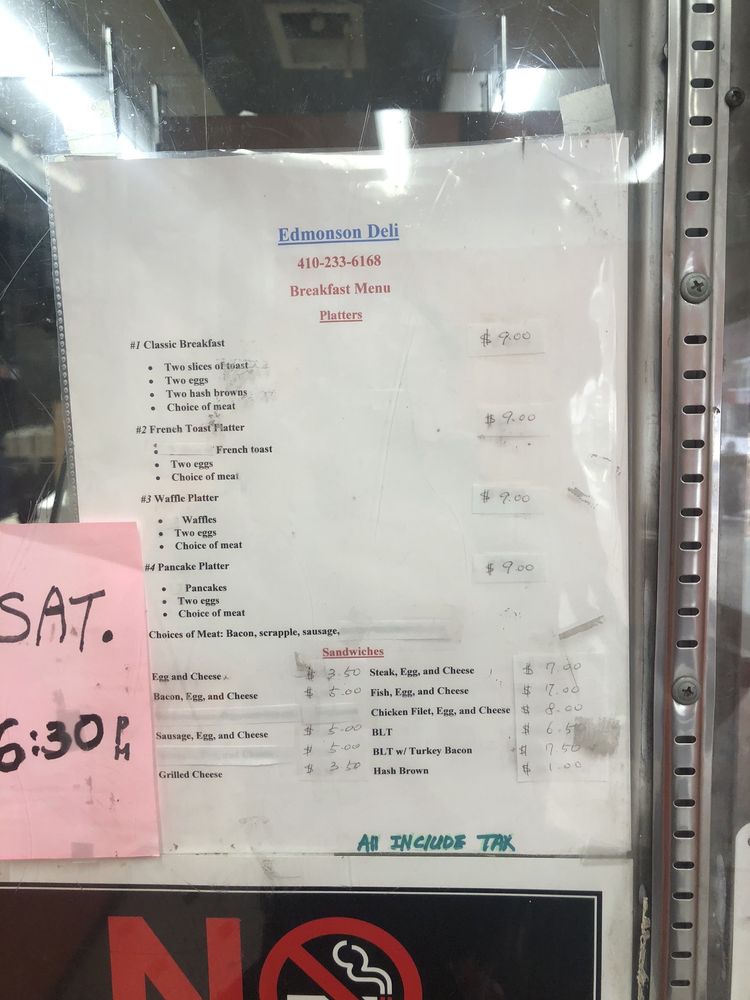 Edmonson Deli
410-233-6168
Breakfast Menu
Platters
#1 Classic Breakfast $ 9.00
Two slices of toast
Two eggs
Two hash browns
Choice of meat
#2 French Toast Platter $ 9.00
French toast
Two eggs
Choice of meat
#3 Waffle Platter $ 9.00
Waffles
Two eggs
Choice of meat
#4 Pancake Platter $ 9.00
Pancakes
Two eggs
Choice of meat
Choices of Meat: Bacon, scrapple, sausage,
Sandwiches
Egg and Cheese $ 3.50 Steak, Egg, and Cheese $ 7.00
Bacon, Egg, and Cheese $ 5.00 Fish, Egg, and Cheese $ 7.00
Chicken Filet, Egg, and Cheese $ 8.00
Sausage, Egg, and Cheese $ 5.00 BLT $ 6.50
$ 5.00 BLT w/ Turkey Bacon $ 7.50
Grilled Cheese $ 3.50 Hash Brown $ 1.00
All INCLUDE TAX
SAT.
6:30 PM
NO